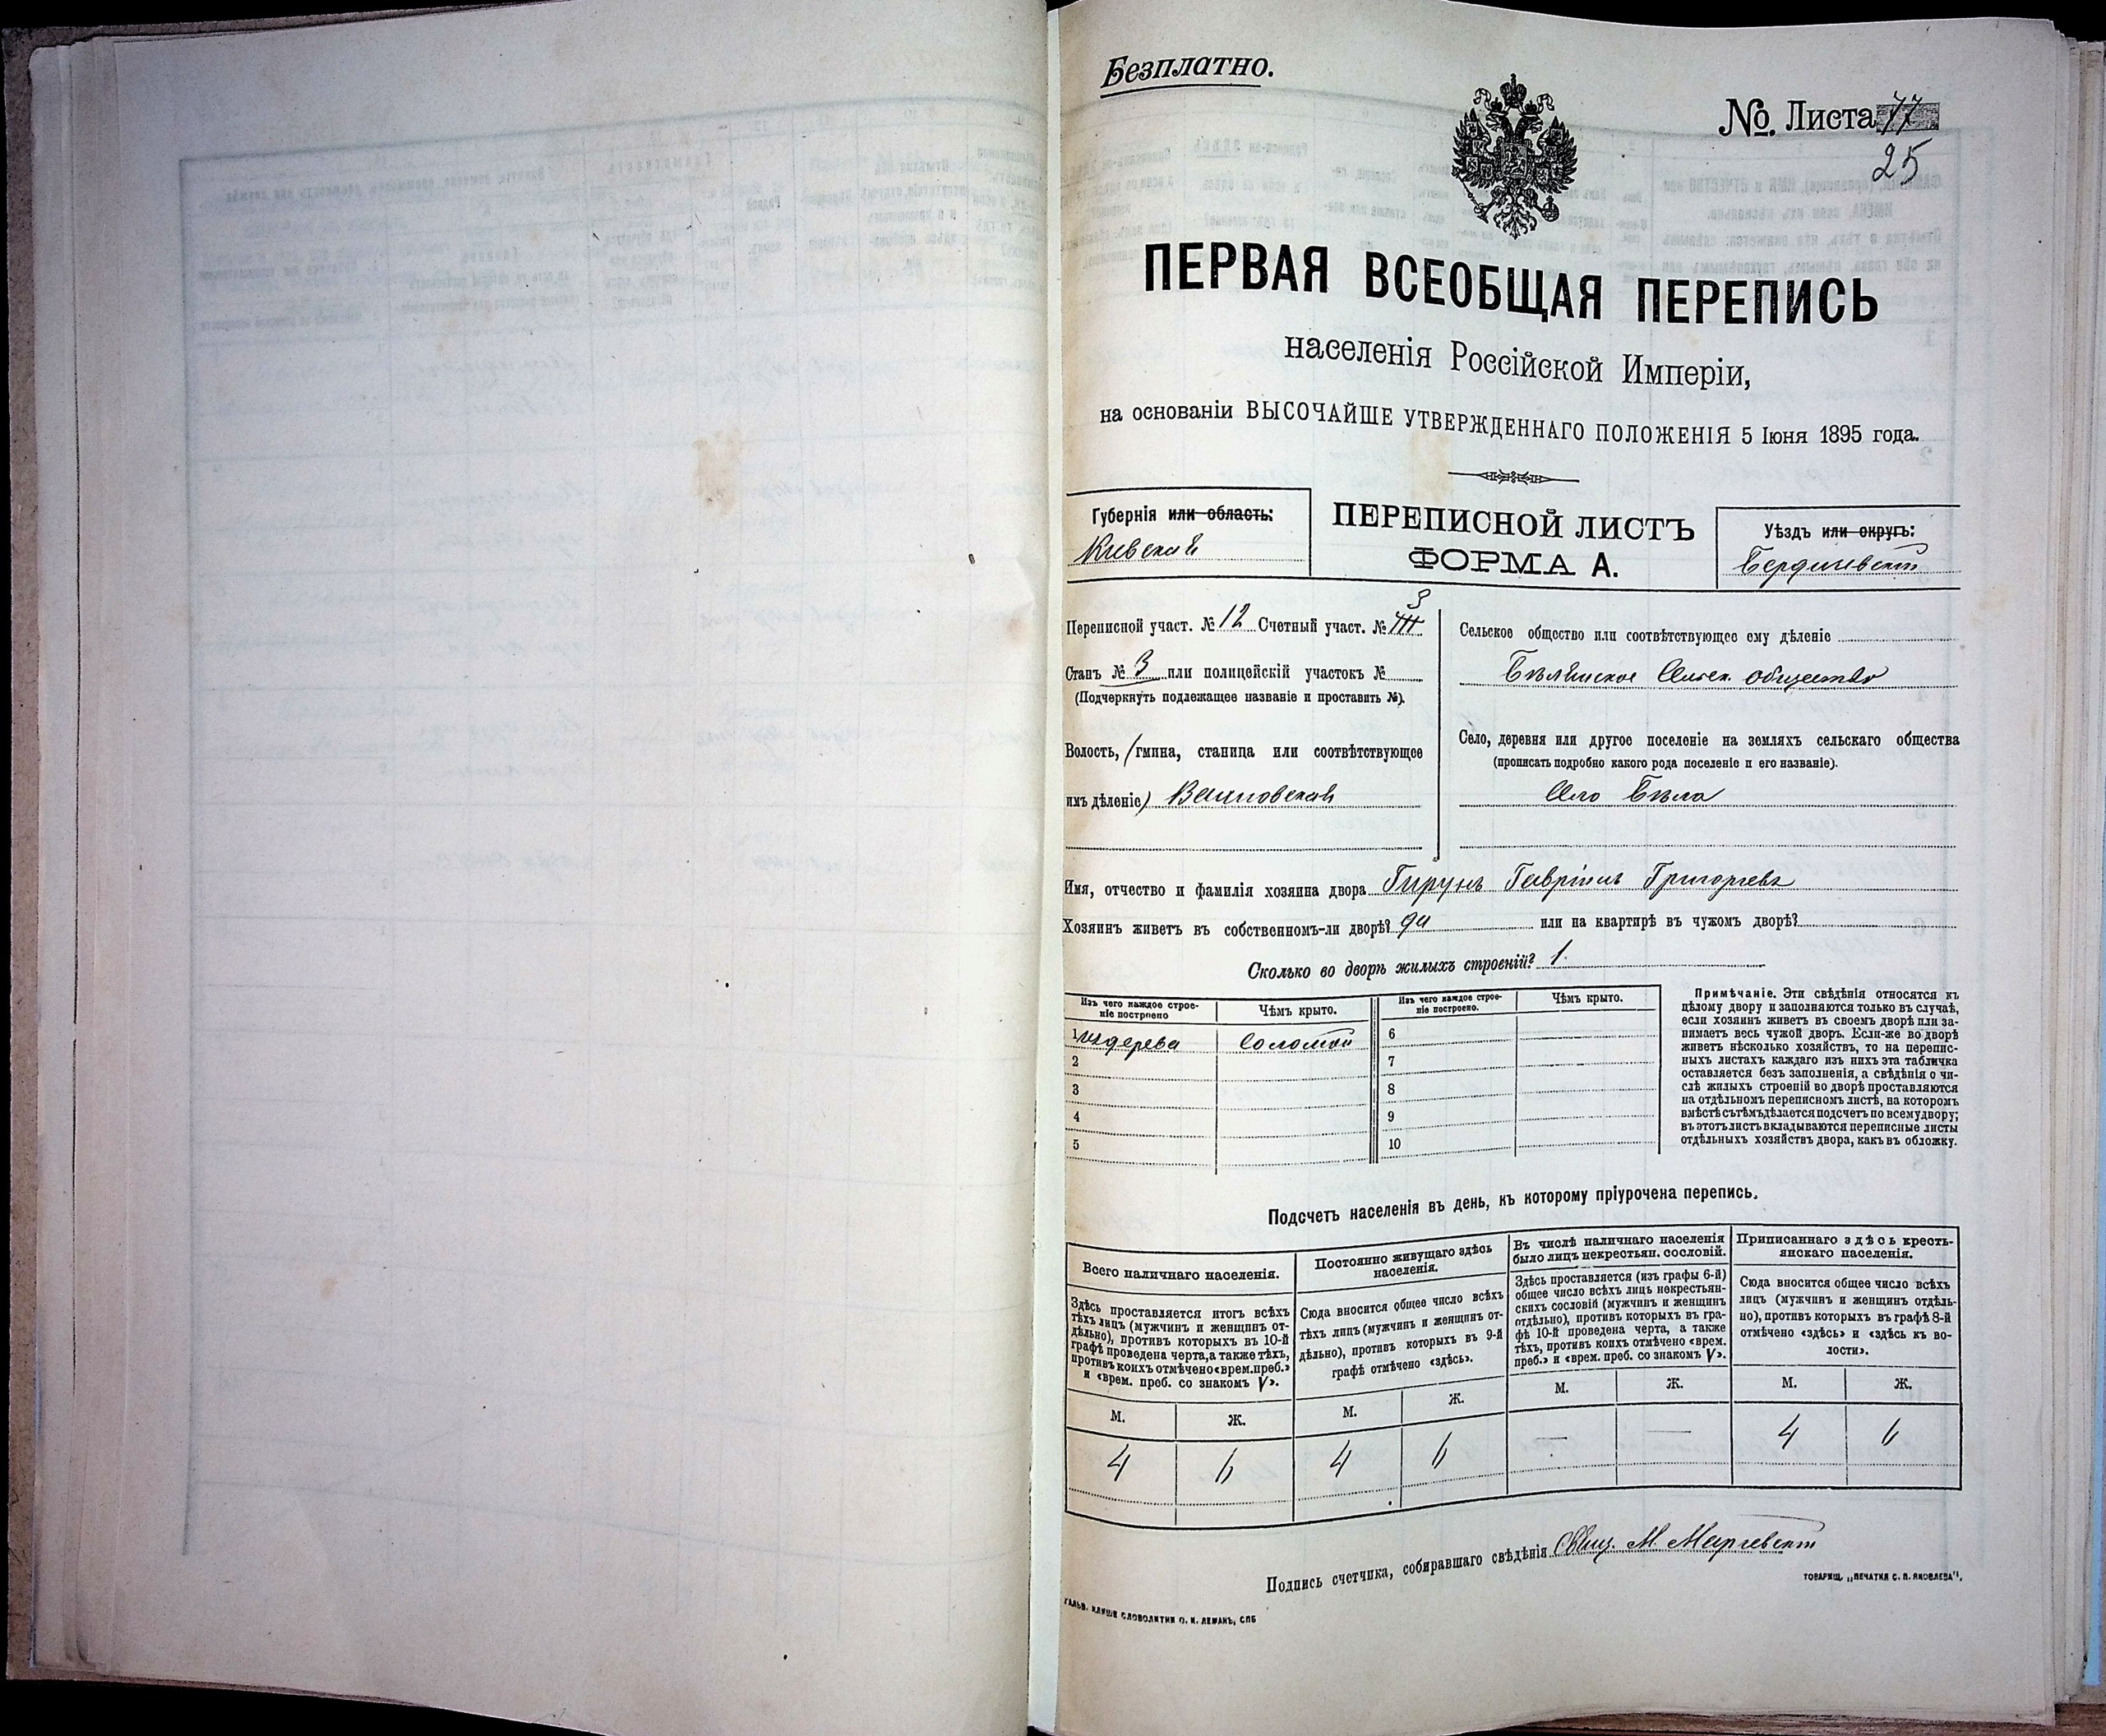 Безплатно.
№. Листа 77
25
ПЕРВАЯ ВСЕОБЩАЯ ПЕРЕПИСЬ
населенія Россійской Имперіи,
на основаніи ВЫСОЧАЙШЕ УТВЕРЖДЕННАГО ПОЛОЖЕНІЯ 5 Іюня 1895 года.
Губернія или область:
Киевская
ПЕРЕПИСНОЙ ЛИСТЪ
ФОРМА А.
Уѣздъ или округъ:
Бердичевскій
3
Переписной участ. № 12 Счетный участ. № III
Станъ № 3 или полицейскій участокъ №
(Подчеркнуть подлежащее названіе и проставить №).
Волость, (гмина, станица или соотвѣтствующее
имъ дѣленіе)
Сельское общество или соотвѣтствующее ему дѣленіе
Сельск. общество
Село, деревня или другое поселеніе на земляхъ сельскаго общества
(прописать подробно какого рода поселеніе и его названіе).
Село Бѣла
Имя, отчество и фамилія хозяина двора Гирунъ Гавріилъ Григорьевъ
Хозяинъ живетъ въ собственномъ-ли дворѣ? да или на квартирѣ въ чужомъ дворѣ?
Сколько во дворѣ жилыхъ строеній? 1.
Изъ чего каждое строе-
ніе построено
Чѣмъ крыто.
Изъ чего каждое строе-
ніе построено.
Чѣмъ крыто.
1 из дерева Соломой 6
2 7
3 8
4 9
5 10
Примѣчаніе. Эти свѣдѣнія относятся къ
цѣлому двору и заполняются только въ случаѣ,
если хозяинъ живетъ въ своемъ дворѣ или за-
нимаетъ весь чужой дворъ. Если-же во дворѣ
живетъ нѣсколько хозяйствъ, то на перепис-
ныхъ листахъ каждаго изъ нихъ эта табличка
оставляется безъ заполненія, а свѣдѣнія о чи-
слѣ жилыхъ строеній во дворѣ проставляются
на отдѣльномъ переписномъ листѣ, на которомъ
вмѣстѣ съ тѣмъ дѣлается подсчетъ по всему двору;
въ этотъ листъ вкладываются переписные листы
отдѣльныхъ хозяйствъ двора, какъ въ обложку.
Подсчетъ населенія въ день, къ которому пріурочена перепись.
Всего наличнаго населенія.
Здѣсь проставляется итогъ всѣхъ
тѣхъ лицъ (мужчинъ и женщинъ от-
дѣльно), противъ которыхъ въ 10-й
графѣ проведена черта, а также тѣхъ,
противъ коихъ отмѣчено «врем. преб.»
и «врем. преб. со знакомъ V».
Постоянно живущаго здѣсь
населенія.
Сюда вносится общее число всѣхъ
тѣхъ лицъ (мужчинъ и женщинъ от-
дѣльно), противъ которыхъ въ 9-й
графѣ отмѣчено «здѣсь».
Въ числѣ наличнаго населенія
было лицъ некрестьян. сословій.
Здѣсь проставляется (изъ графы 6-й)
общее число всѣхъ лицъ некрестьян-
скихъ сословій (мужчинъ и женщинъ
отдѣльно), противъ которыхъ въ гра-
фѣ 10-й проведена черта, а также
тѣхъ, противъ коихъ отмѣчено «врем.
преб.» и «врем. преб. со знакомъ V».
Приписаннаго здѣсь кресть-
янскаго населенія.
Сюда вносится общее число всѣхъ
лицъ (мужчинъ и женщинъ отдѣль-
но), противъ которыхъ въ графѣ 8-й
отмѣчено «здѣсь» и «здѣсь къ во-
лости».
М. Ж. М. Ж. М. Ж. М. Ж.
4 6 4 6 — — 4 6
Подпись счетчика, собиравшаго свѣдѣнія
ТОВАРИЩ. „ПЕЧАТНЯ С. П. ЯКОВЛЕВА“.
ГАЛЬВ. КЛИШЕ СЛОВОЛИТНИ О. И. ЛЕМАНЪ, СПБ